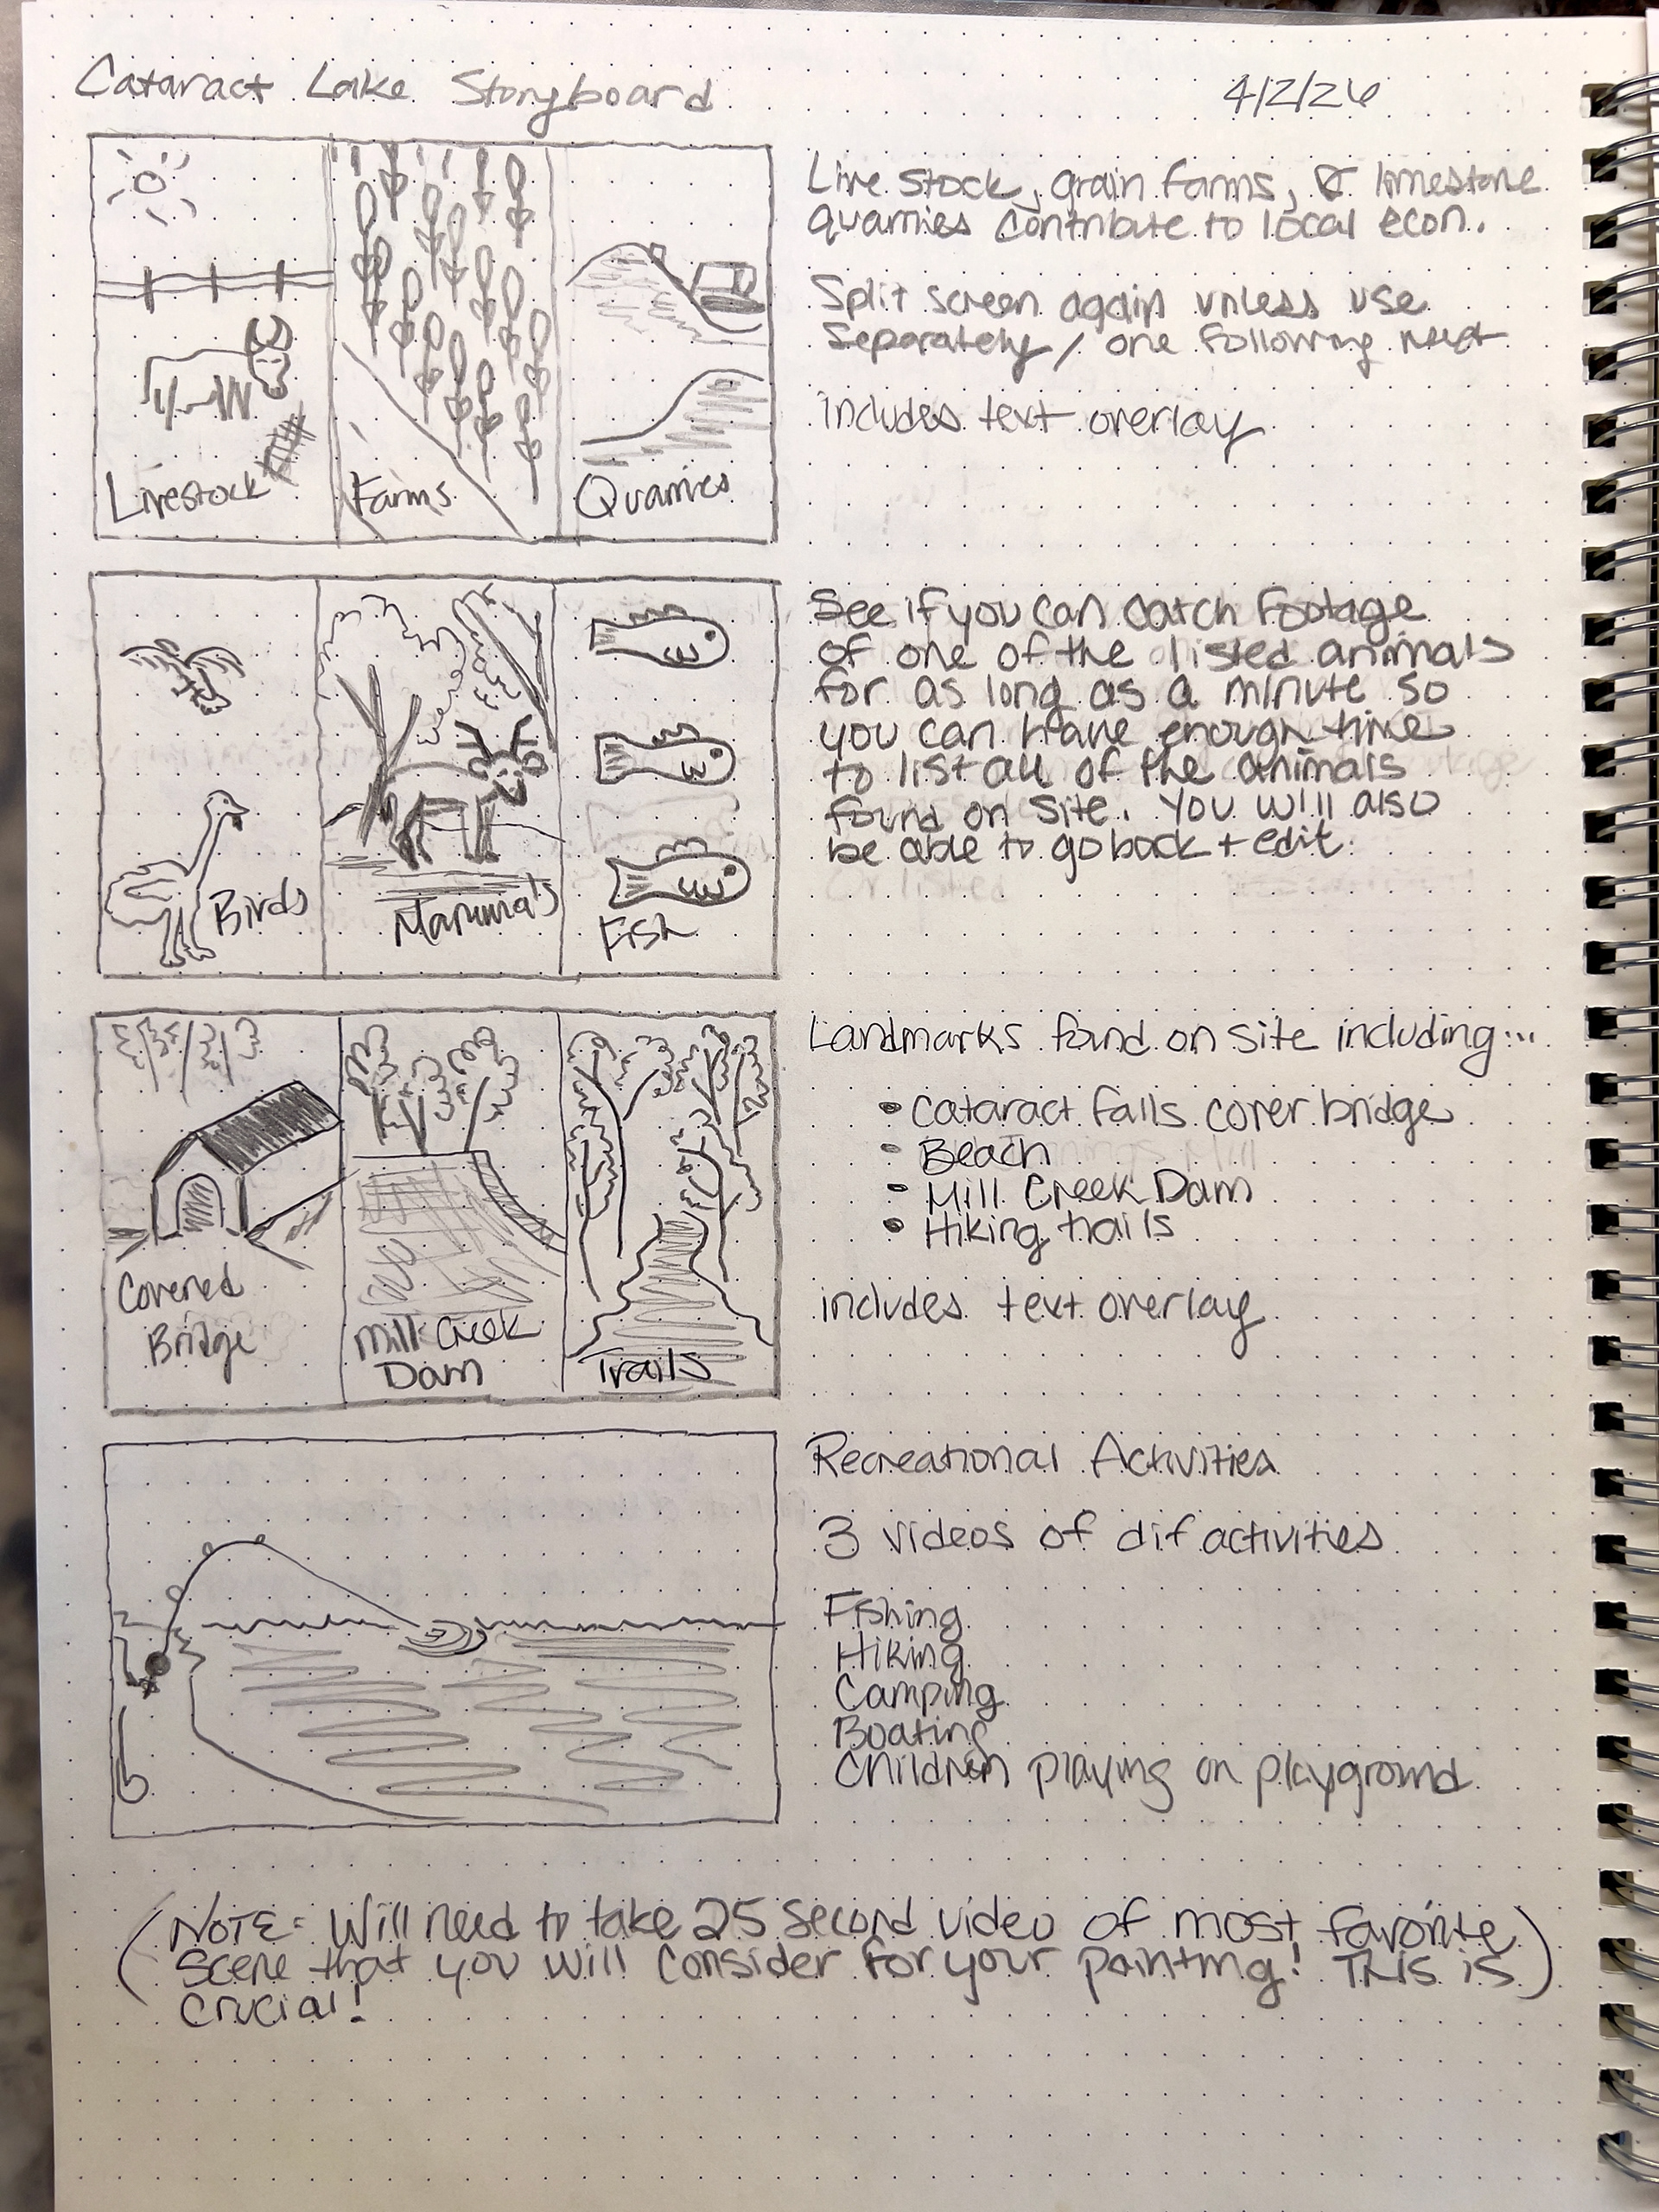 Cataract Lake Storyboard
4/2/26
Live stock, grain farms, & limestone
quarries contribute to local econ.
Split screen again unless use
Seperately / one following next
includes text overlay
Livestock
Farms
Quarries
See if you can catch footage
of one of the listed animals
for as long as a minute so
you can have enough time
to list all of the animals
found on site. You will also
be able to go back + edit.
Birds
Mammals
Fish
Landmarks found on site including...
• Cataract falls cover bridge
- Beach
- Mill Creek Dam
• Hiking trails
includes text overlay
Covered
Bridge
Mill Creek
Dam
Trails
Recreational Activities
3 videos of dif activities
Fishing
Hiking
Camping
Boating
Children playing on playground
(NOTE: Will need to take 25 second video of most favorite
scene that you will consider for your painting! This is)
crucial!